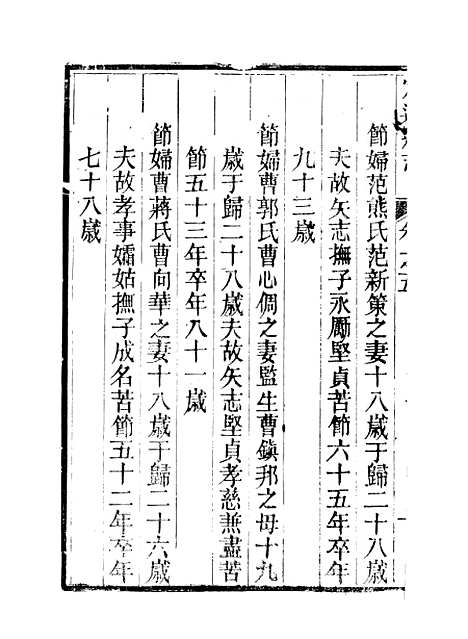 節婦范熊氏范新策之妻十八歲于歸二十八歲
夫故矢志撫子永勵堅貞苦節六十五年卒年
九十三歲
節婦曹郭氏曹心倜之妻監生曹鎮邦之母十九
歲于歸二十八歲夫故矢志堅貞孝慈無盡苦
節五十三年卒年八十一歲
節婦曹蔣氏曹向華之妻十八歲于歸二十六歲
夫故孝事孀姑撫子成名苦節五十二年卒年
七十八歲